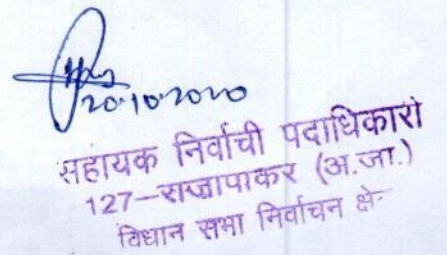 20.10.2020
सहायक निर्वाची पदाधिकारी
127-राजापाकर (अ.जा.)
विधान सभा निर्वाचन क्षे